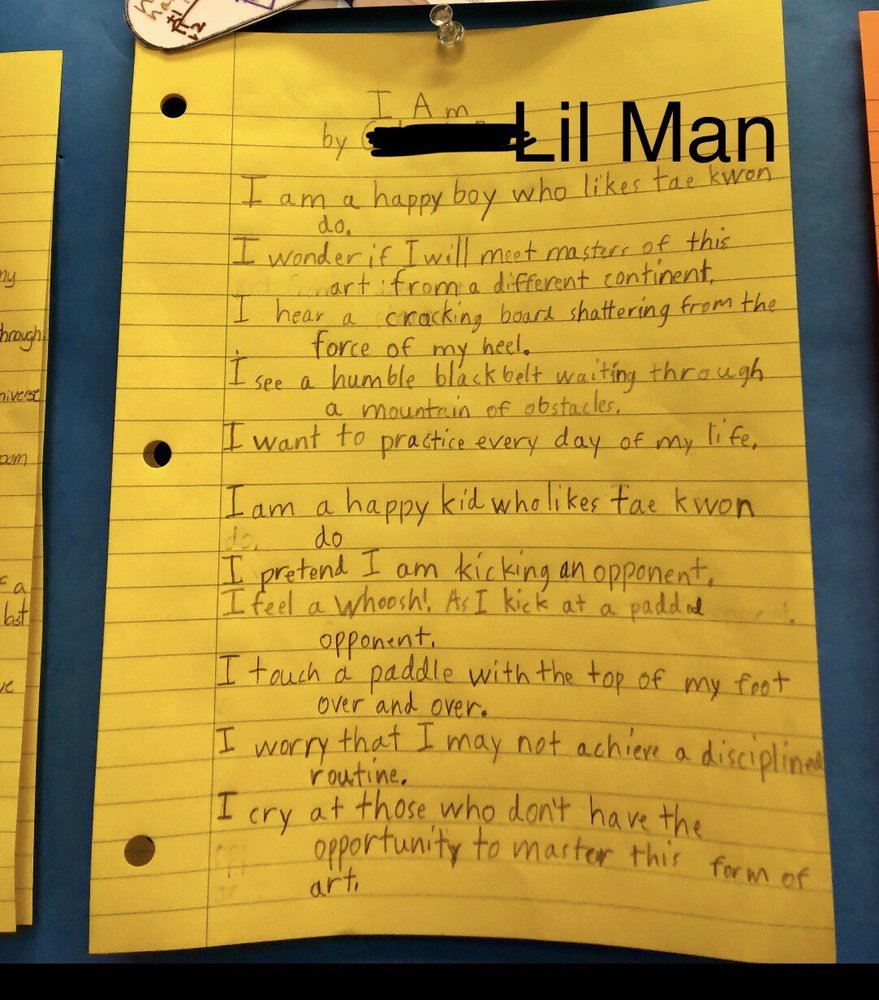 I Am
by Lil Man
I am a happy boy who likes tae kwon
do.
I wonder if I will meet masters of this
art from a different continent.
I hear a cracking board shattering from the
force of my heel.
I see a humble black belt waiting through
a mountain of obstacles.
I want to practice every day of my life.
I am a happy kid who likes tae kwon
do
I pretend I am kicking an opponent.
I feel a whoosh! As I kick at a padded
opponent.
I touch a paddle with the top of my foot
over and over.
I worry that I may not achieve a disciplined
routine.
I cry at those who don't have the
opportunity to master this form of
art.
hrough
niverse